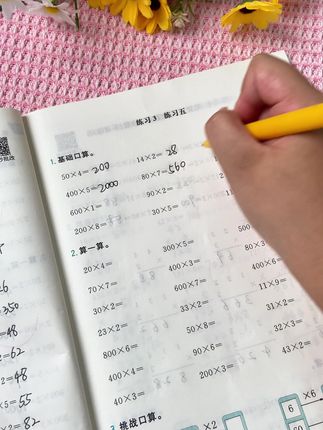 练习3 练习五
1. 基础口算。
50×4=200 14×2=28
400×5=2000 80×7=560
600×1= 90×2=
200×8= 30×5=
2. 算一算。
20×4= 300×5= 500
70×7= 400×3= 80×
30×2= 600×7= 60×
23×2= 33×2= 11×9=
800×6= 50×8= 32×3=
400×4= 90×6= 43×2=
30×3= 200×3=
3. 挑战口算。
×2 6 ×6
350
=48
2=62
2=48
×5=55
2=82